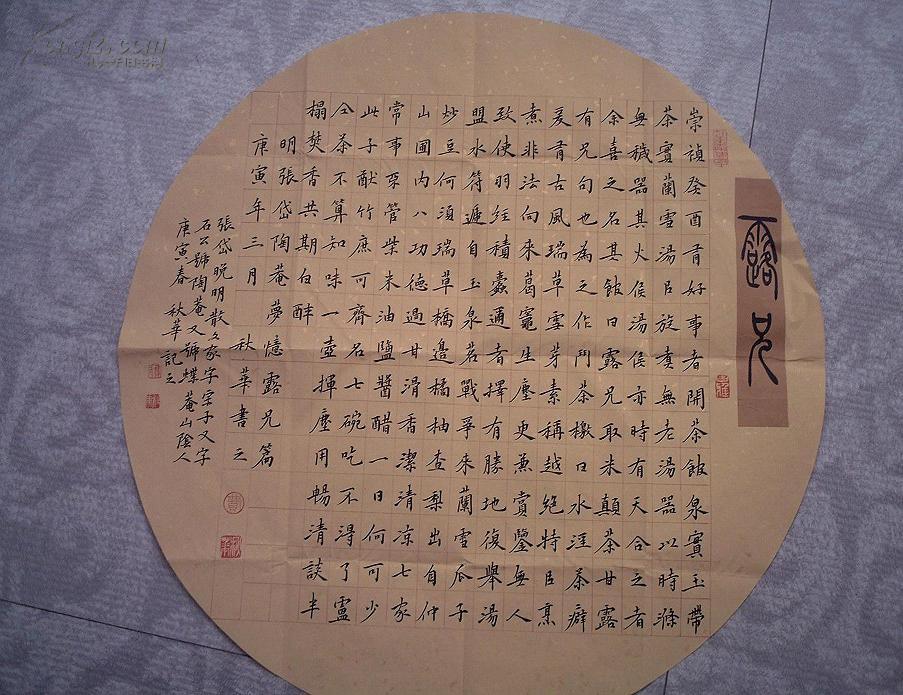 露兄
崇禎癸酉有好事者開茶館泉實玉帶
茶實蘭雪湯以旋煮無老湯器以時滌
無穢器其火候湯候亦時有天合之者
余喜之名其館曰露兄取米顛茶甘露
有兄句也為之作鬥茶檄曰水淫茶癖
爰有古風瑞草雪芽素稱越絕特以烹
煮非法向來葛竈生塵更兼賞鑒無人
致使羽經積蠹邇者擇有勝地復舉湯
盟水符遞自玉泉茗戰爭來蘭雪瓜子
炒豆何須瑞草橋邊橘柚查梨出自仲
山圃內八功德過甘滑香潔清涼七家
常事不管柴米油鹽醬醋一日何可少
此子猷竹庶可齊名七碗吃不得了盧
仝茶不算知味一壺揮麈用暢清談半
榻焚香共期白醉
明張岱陶菴夢憶露兄篇
庚寅年三月 秋華書之
張岱晚明散文家字宗子又字
石公號陶菴又號蝶菴山陰人
庚寅春 秋華記之